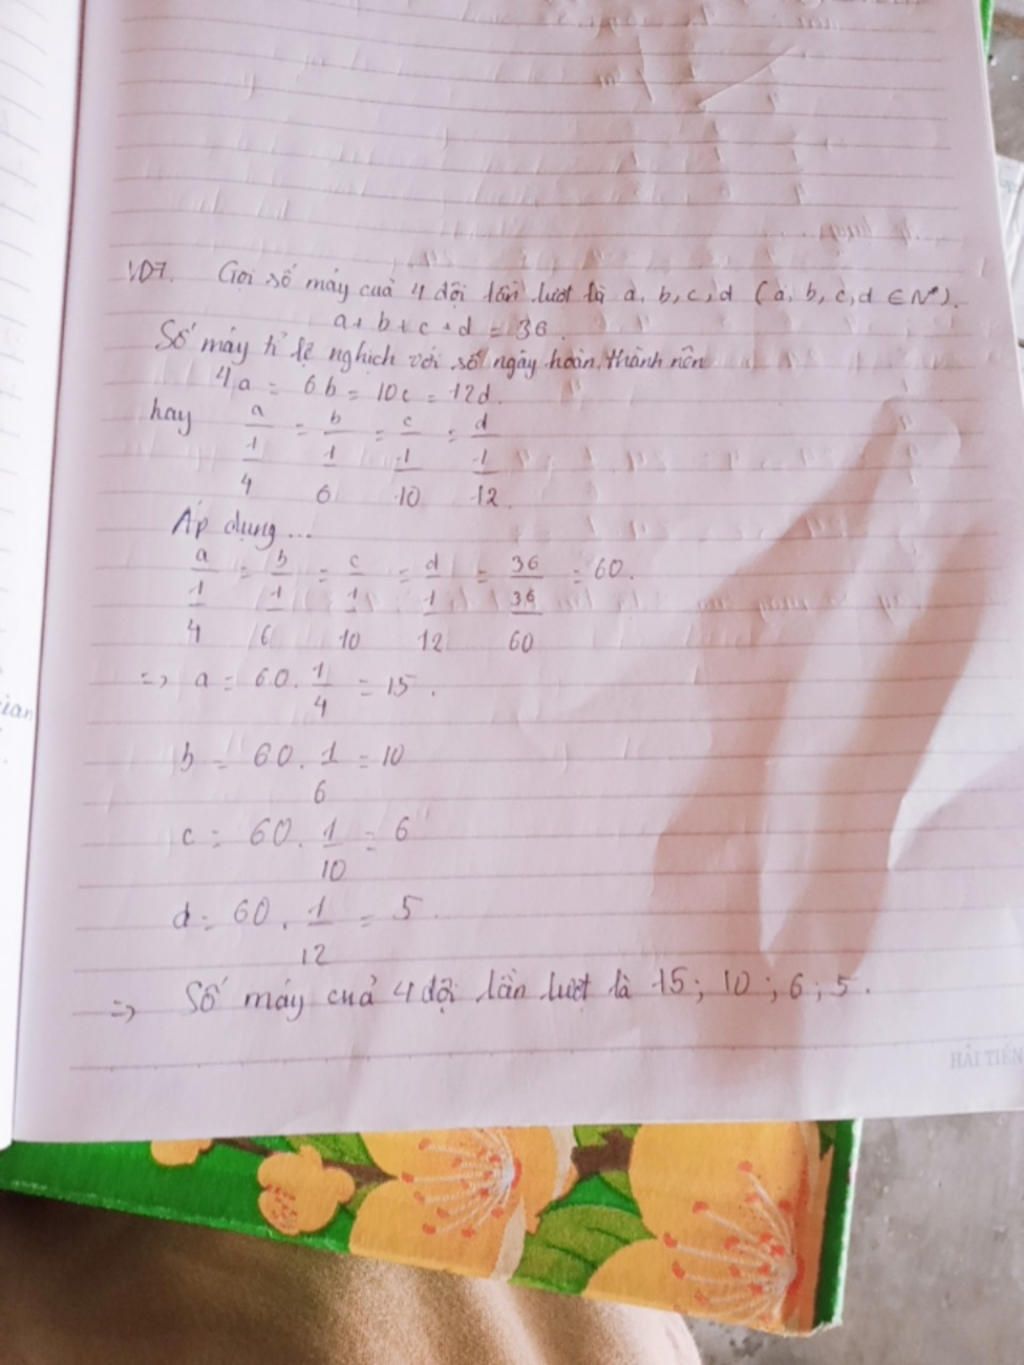 VD7. Gọi số máy cuả 4 đội lần lượt là a, b, c, d (a, b, c, d ∈ N*).
a + b + c + d = 36.
Số máy tỉ lệ nghịch với số ngày hoàn thành nên
4a = 6b = 10c = 12d.
hay a/(1/4) = b/(1/6) = c/(1/10) = d/(1/12).
Áp dụng...
a/(1/4) = b/(1/6) = c/(1/10) = d/(1/12) = 36/(36/60) = 60.
=> a = 60 . 1/4 = 15.
b = 60 . 1/6 = 10
c = 60 . 1/10 = 6
d = 60 . 1/12 = 5.
=> Số máy cuả 4 đội lần lượt là 15; 10; 6; 5.
HẢI TIẾN